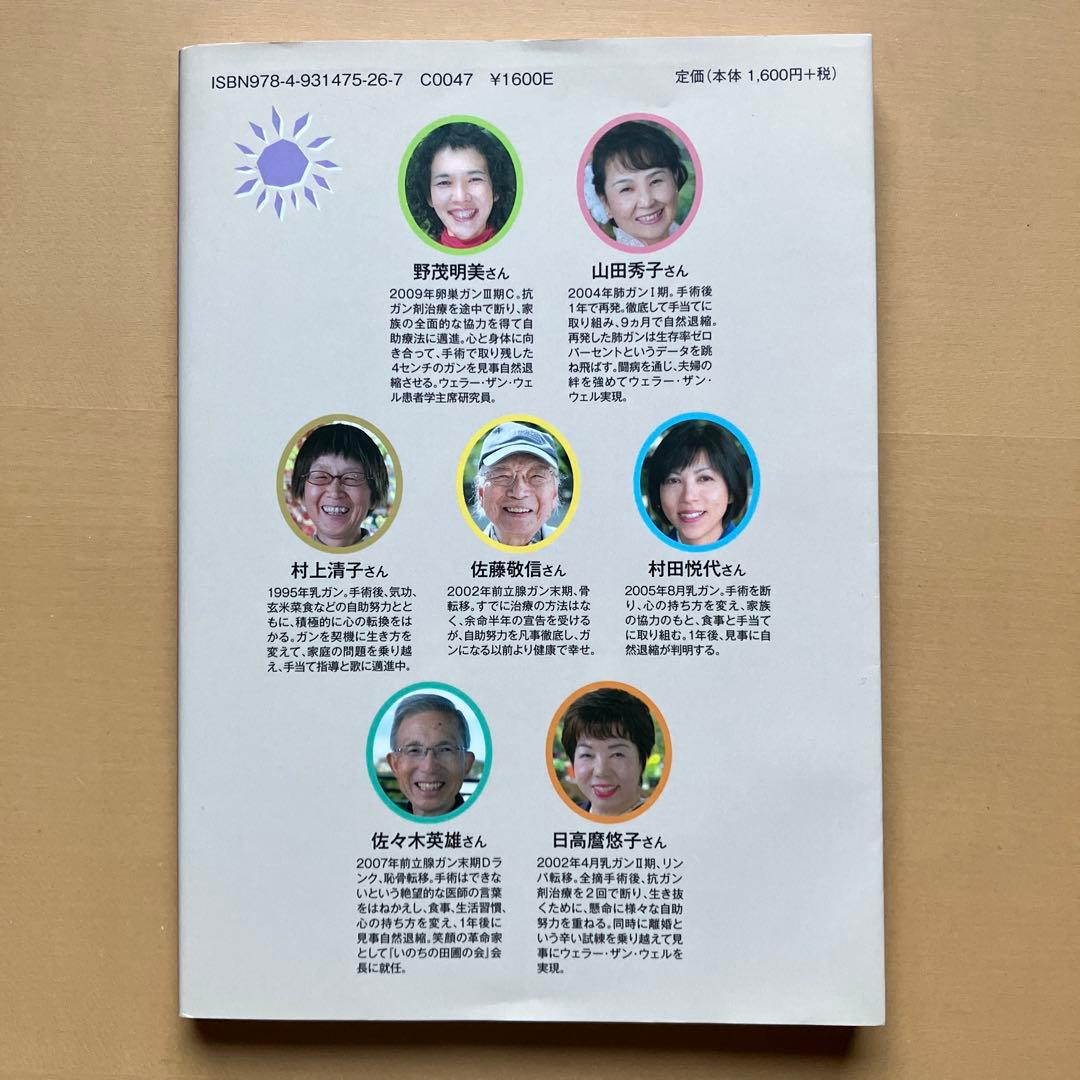 ISBN978-4-931475-26-7 C0047 ¥1600E
定価(本体 1,600円+税)
野茂明美さん
2009年卵巣ガンⅢ期C。抗
ガン剤治療を途中で断り、家
族の全面的な協力を得て自
助療法に邁進。心と身体に向
き合って、手術で取り残した
4センチのガンを見事自然退
縮させる。ウェラー・ザン・ウェ
ル患者学主席研究員。
山田秀子さん
2004年肺ガンⅠ期。手術後
1年で再発。徹底して手当てに
取り組み、9ヵ月で自然退縮。
再発した肺ガンは生存率ゼロ
パーセントというデータを跳
ね飛ばす。闘病を通じ、夫婦の
絆を強めてウェラー・ザン・
ウェル実現。
村上清子さん
1995年乳ガン。手術後、気功、
玄米菜食などの自助努力とと
もに、積極的に心の転換をは
かる。ガンを契機に生き方を
変えて、家庭の問題を乗り越
え、手当て指導と歌に邁進中。
佐藤敬信さん
2002年前立腺ガン末期、骨
転移。すでに治療の方法はな
く、余命半年の宣告を受ける
が、自助努力を凡事徹底し、ガ
ンになる以前より健康で幸せ。
村田悦代さん
2005年8月乳ガン。手術を断
り、心の持ち方を変え、家族
の協力のもと、食事と手当て
に取り組む。1年後、見事に自
然退縮が判明する。
佐々木英雄さん
2007年前立腺ガン末期Dラ
ンク、恥骨転移。手術はできな
いという絶望的な医師の言葉
をはねかえし、食事、生活習慣、
心の持ち方を変え、1年後に
見事自然退縮。笑顔の革命家
として「いのちの田圃の会」会
長に就任。
日高麿悠子さん
2002年4月乳ガンⅡ期、リン
パ転移。全摘手術後、抗ガン
剤治療を2回で断り、生き抜
くために、懸命に様々な自助
努力を重ねる。同時に離婚と
いう辛い試練を乗り越えて見
事にウェラー・ザン・ウェルを
実現。